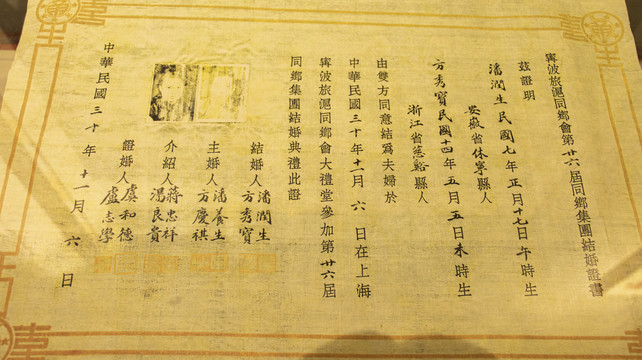 寗波旅滬同鄉會第廿六屆同鄉集團結婚證書
茲證明
潘潤生民國七年正月十七日午時生
安徽省休寧縣人
方秀寶民國十四年五月五日未時生
浙江省慈谿縣人
由雙方同意結爲夫婦於
中華民國三十年十一月六日在上海
寗波旅滬同鄉會大禮堂參加第廿六屆
同鄉集團結婚典禮此證
結婚人潘潤生
方秀寶
主婚人潘養生
方慶祺
介紹人蔣忠祥
湯良貴
證婚人虞和德
盧志學
中華民國三十年十一月六日